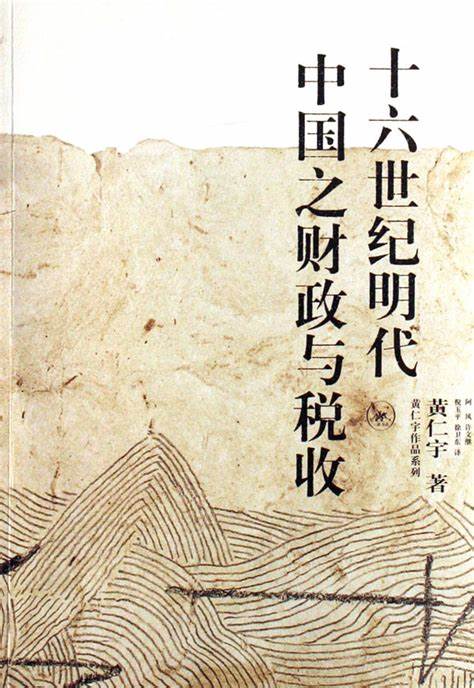 十六世纪明代
中国之财政与税收
黄仁宇 著
阿风 许文继
倪玉平 徐卫东 译
黄仁宇作品系列